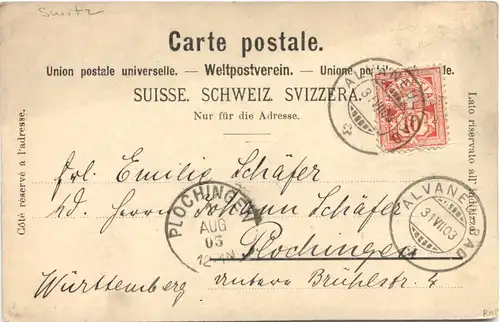 Switz
Carte postale.
Union postale universelle. — Weltpostverein. — Unione postale universale.
SUISSE. SCHWEIZ. SVIZZERA.
Nur für die Adresse.
Côté réservé à l'adresse.
Lato riservato all'indirizzo.
ALVANEU BAD
31 VII 03
10
Frl. Emilie Schäfer
Ad. Herrn Johann Schäfer
Plochingen
Württemberg untere Brühlstr. 4
PLOCHINGEN
AUG
03
ALVANEU BAD
31 VII 03